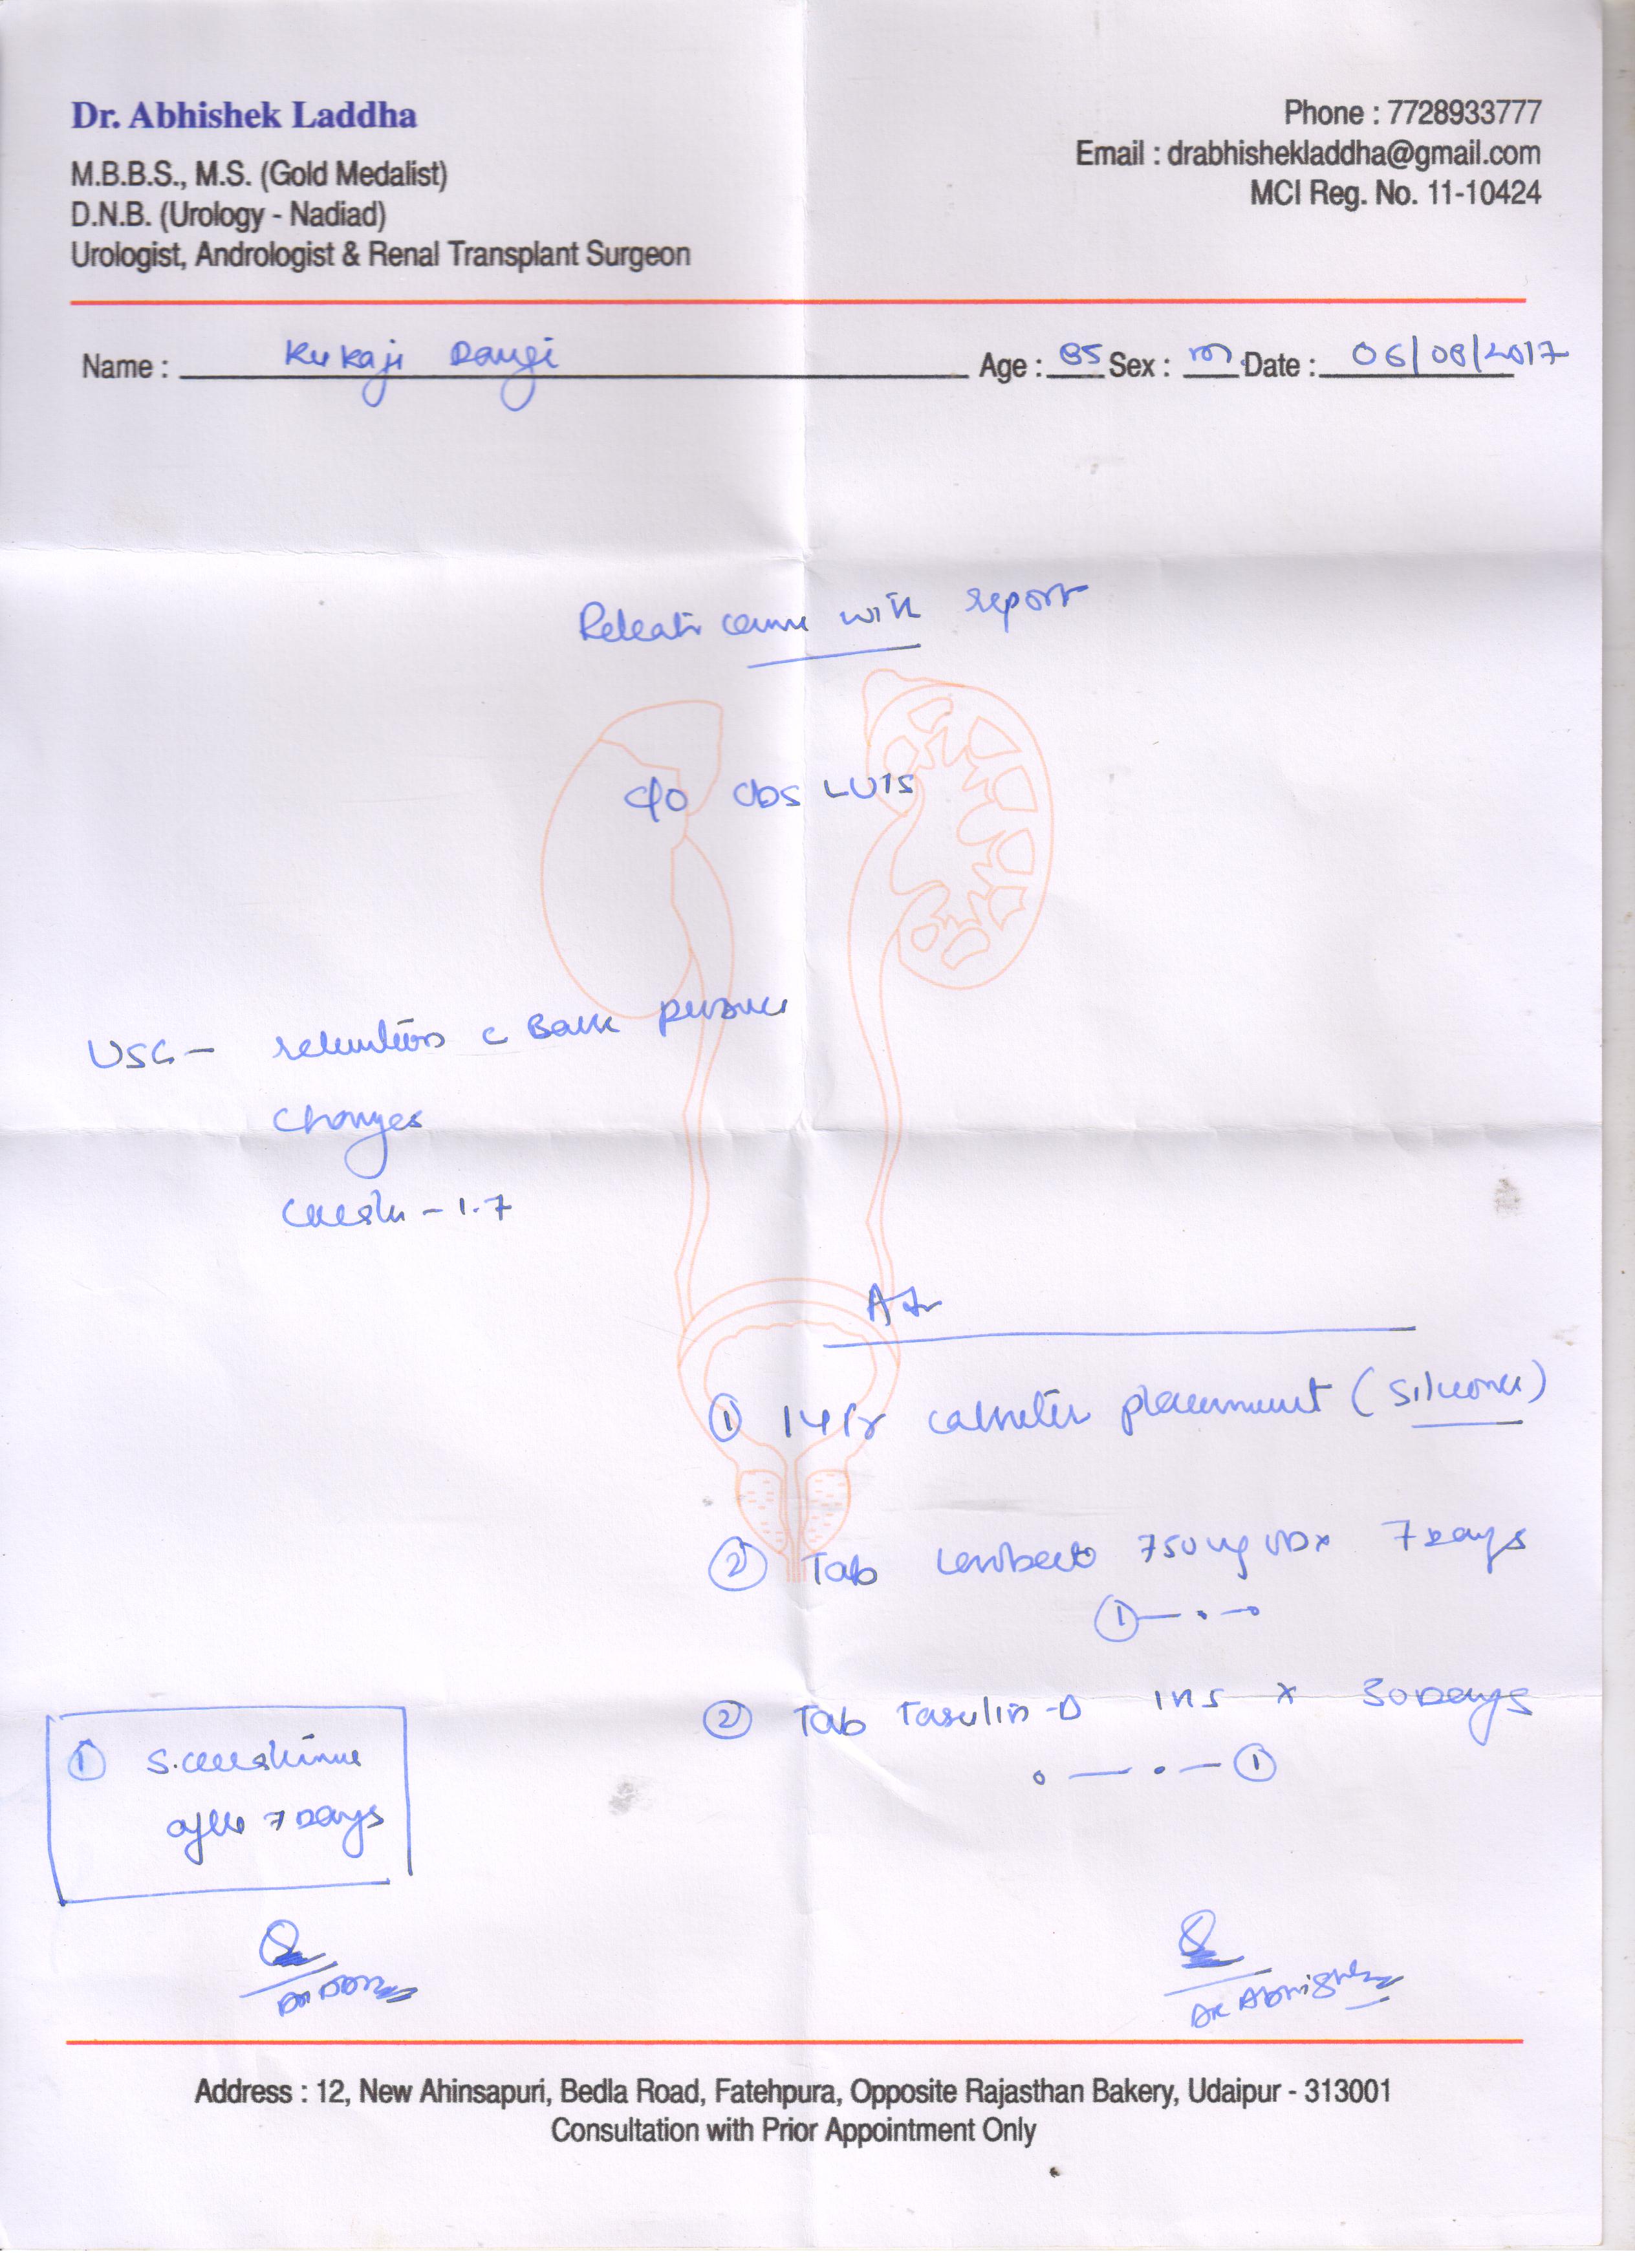 Dr. Abhishek Laddha
M.B.B.S., M.S. (Gold Medalist)
D.N.B. (Urology - Nadiad)
Urologist, Andrologist & Renal Transplant Surgeon
Phone : 7728933777
Email : drabhishekladdha@gmail.com
MCI Reg. No. 11-10424
Name : Kukaji Dangi Age : 85 Sex : m Date : 06/08/2017
came with report
c/o obs LUTS
USG - retention c Back pressure
changes
1.7
① 14 fr catheter placement (silicone)
② Tab 750 mg OD x 7 Days
① — . — o
② Tab Tasulin-D 1 HS x 30 Days
o — . — ①
① S. creatinine
after 7 Days
Dr Abhishek
Address : 12, New Ahinsapuri, Bedla Road, Fatehpura, Opposite Rajasthan Bakery, Udaipur - 313001
Consultation with Prior Appointment Only